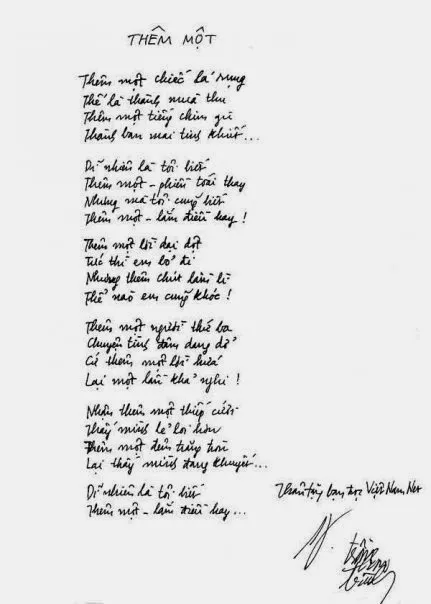 THÊM MỘT
Thêm một chiếc lá rụng
Thế là thành mùa thu
Thêm một tiếng chim gù
Thành ban mai tinh khiết...
Dĩ nhiên là tôi biết
Thêm một - phiền toái thay
Nhưng mà tôi cũng biết
Thêm một - lắm điều hay!
Thêm một lời dại dột
Tức thì em bỏ đi
Nhưng thêm chút lầm lì
Thế nào em cũng khóc!
Thêm một người thứ ba
Chuyện tình đâm dang dở
Cứ thêm một lời hứa
Lại một lần khả nghi!
Nhận thêm một thiếp cưới
Thấy mình lẻ loi hơn
Thêm một đêm trăng tròn
Lại thấy mình đang khuyết...
Dĩ nhiên là tôi biết
Thêm một - lắm điều hay...
Thân tặng bạn đọc Việt Nam Net